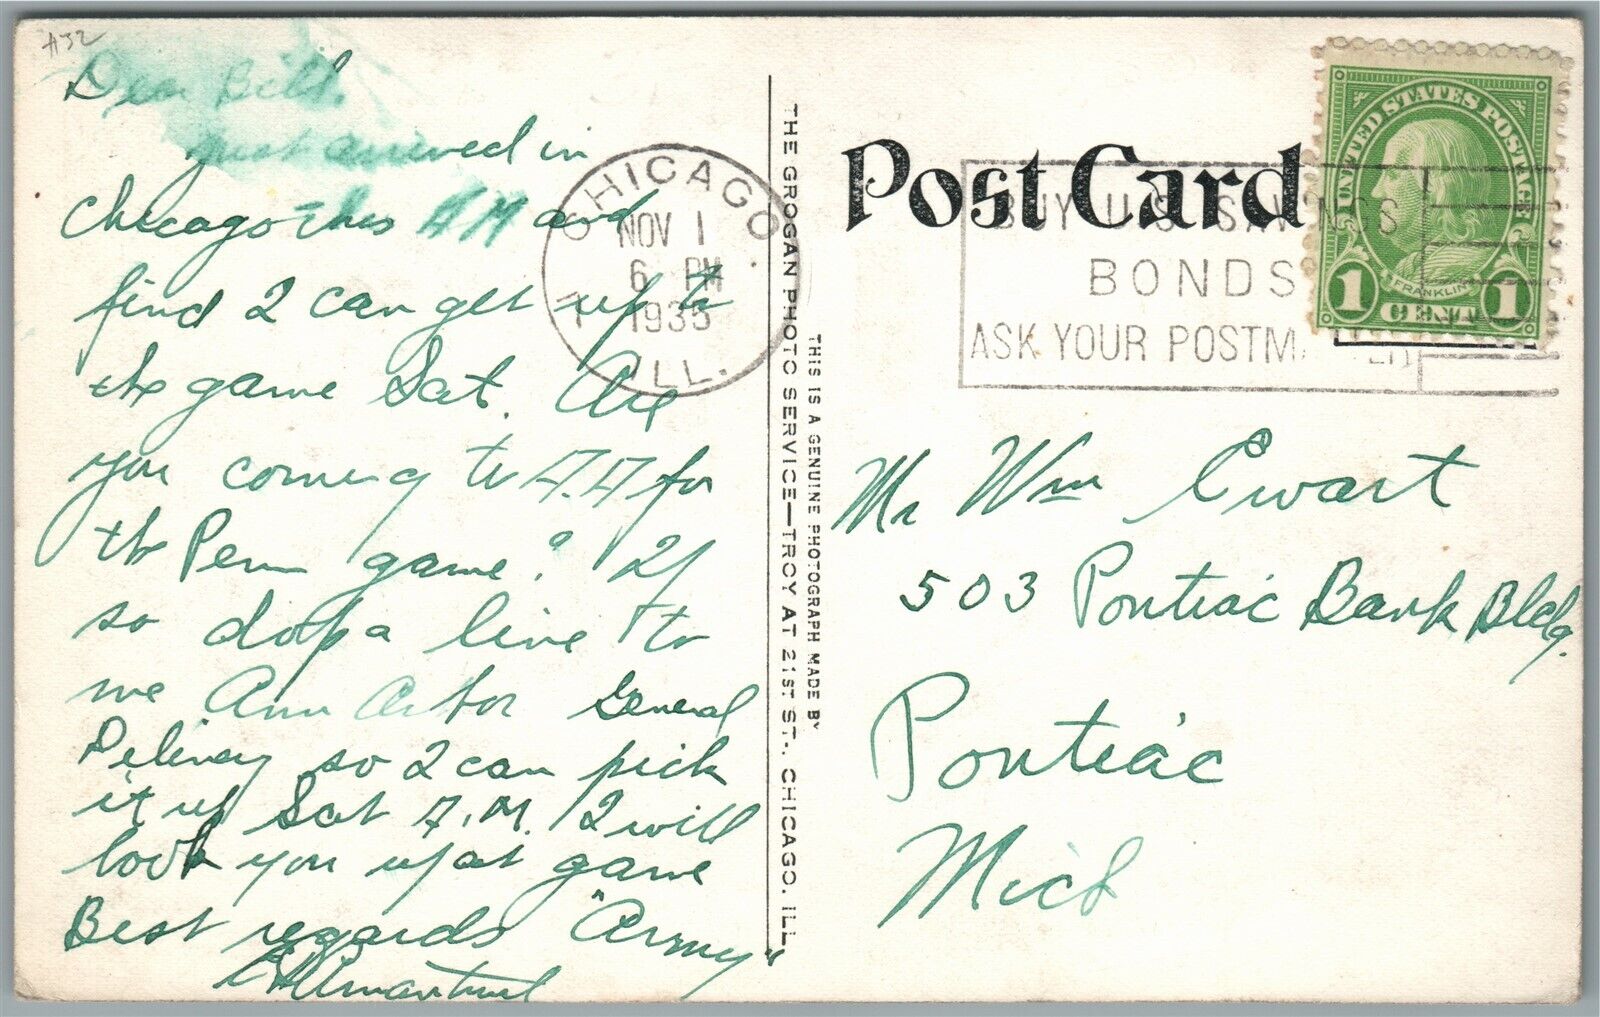 #32
Dear Bill.
just arrived in
Chicago this A M and
find I can get up to
the game Sat. Are
you coming to A.A for
the Penn game? If
so drop a line to
me Ann Arbor General
Delivery so I can pick
it up Sat A.M. I will
look you up at game
Best regards "Army"
CHICAGO
NOV 1
6 PM
1935
ILL.
THE GROGAN PHOTO SERVICE—TROY AT 21ST ST., CHICAGO, ILL.
THIS IS A GENUINE PHOTOGRAPH MADE BY
Post Card
BUY U.S. SAVINGS
BONDS
ASK YOUR POSTMASTER
UNITED STATES POSTAGE
FRANKLIN
1 CENT 1
Mr Wm Ewart
503 Pontiac Bank Bldg.
Pontiac
Mich